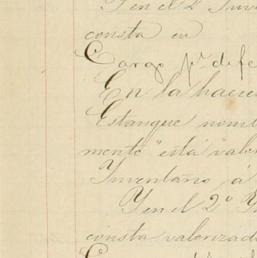 Y en el 2º Inv
consta en
Cargo pr. defe
En la hacie
Estanque nom
mente" está valor
Inventario á
Y en el 2º Y
consta valorizad